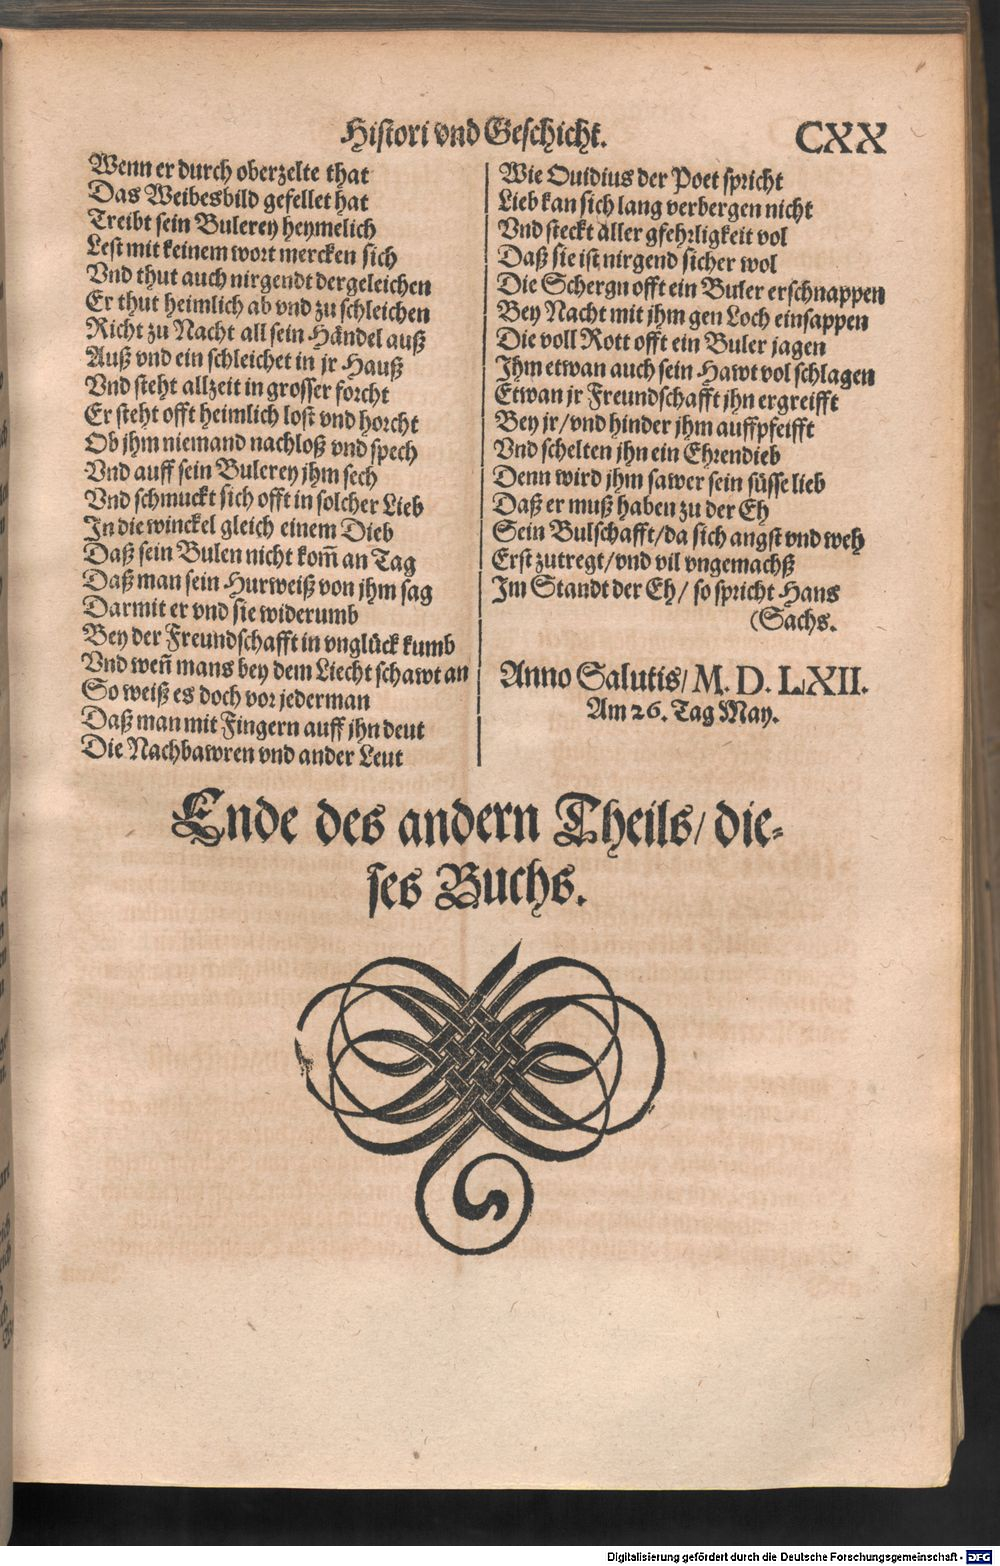 Histori vnd Geschicht. CXX
Wenn er durch oberzelte that
Das Weibesbild gefellet hat
Treibt sein Bulerey heymelich
Lest mit keinem wort mercken sich
Vnd thut auch nirgendt dergeleichen
Er thut heimlich ab vnd zu schleichen
Richt zu Nacht all sein Händel auß
Auß vnd ein schleichet in jr Hauß
Vnd steht allzeit in grosser forcht
Er steht offt heimlich lost vnd horcht
Ob jhm niemand nachloß vnd spech
Vnd auff sein Bulerey jhm sech
Vnd schmuckt sich offt in solcher Lieb
In die winckel gleich einem Dieb
Daß sein Bulen nicht kom̃ an Tag
Daß man sein Hurweiß von jhm sag
Darmit er vnd sie widerumb
Bey der Freundschafft in vnglück kumb
Vnd weñ mans bey dem Liecht schawt an
So weiß es doch vor jederman
Daß man mit Fingern auff jhn deut
Die Nachbawren vnd ander Leut
Wie Ouidius der Poet spricht
Lieb kan sich lang verbergen nicht
Vnd steckt aller gfehrligkeit vol
Daß sie ist nirgend sicher wol
Die Schergn offt ein Buler erschnappen
Bey Nacht mit jhm gen Loch einsappen
Die voll Rott offt ein Buler jagen
Ihm etwan auch sein Hawt vol schlagen
Etwan jr Freundschafft jhn ergreifft
Bey jr/ vnd hinder jhm auffpfeifft
Vnd schelten jhn ein Ehrendieb
Denn wird jhm sawer sein süsse lieb
Daß er muß haben zu der Eh
Sein Bulschafft/ da sich angst vnd weh
Erst zutregt/ vnd vil vngemachß
Im Standt der Eh/ so spricht Hans
(Sachs.
Anno Salutis/ M. D. LXII.
Am 26. Tag May.
Ende des andern Theils/ die-
ses Buchs.
Digitalisierung gefördert durch die Deutsche Forschungsgemeinschaft - DFG